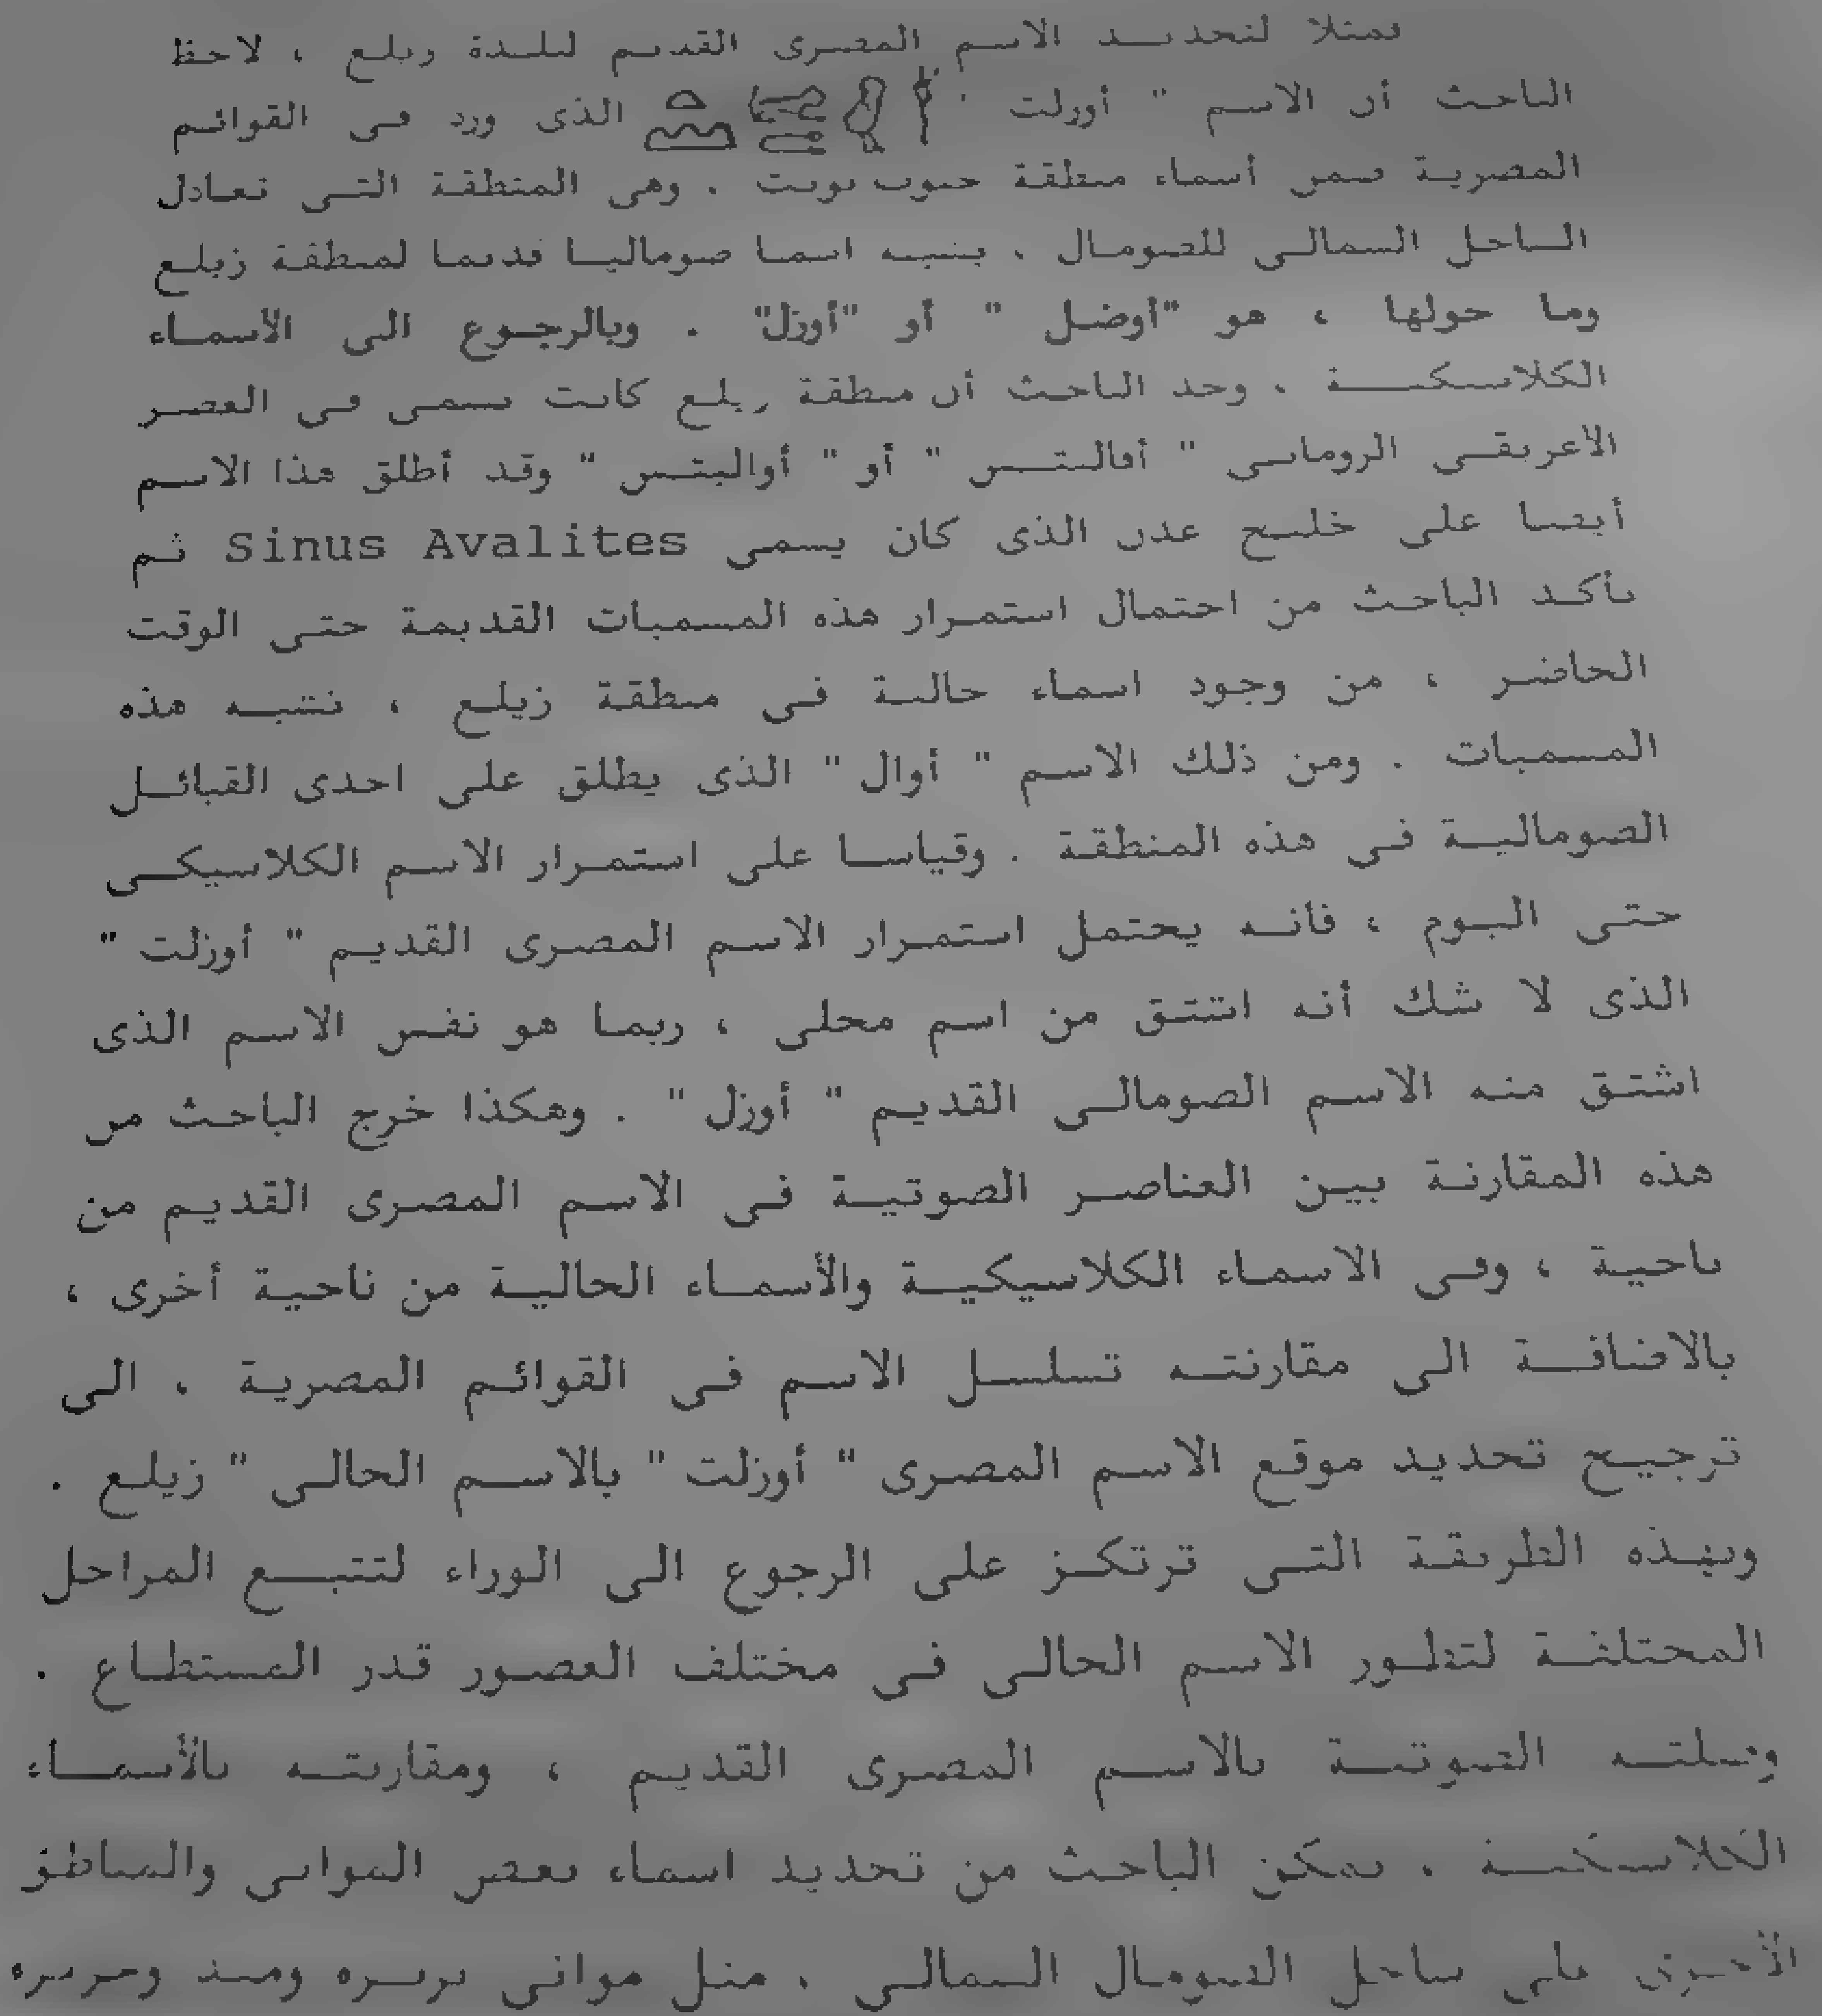 فمثلا لتحديد الاسم المصرى القديم لبلدة زيلع ، لاحظ
الباحث أن الاسم " أوزلت " الذى ورد فى القوائم
المصرية ضمن أسماء منطقة جنوب بونت . وهى المنطقة التى تعادل
الساحل الشمالى للصومال ، يشبه اسما صوماليا قديما لمنطقة زيلع
وما حولها ، هو "أوضل " أو "أوزل" . وبالرجوع الى الأسماء
الكلاسيكية ، وجد الباحث أن منطقة زيلع كانت تسمى فى العصر
الاغريقى الرومانى " أفاليتس " أو " أواليتس " وقد أطلق هذا الاسم
أيضا على خليج عدن الذى كان يسمى Sinus Avalites ثم
تأكد الباحث من احتمال استمرار هذه المسميات القديمة حتى الوقت
الحاضر ، من وجود اسماء حالية فى منطقة زيلع ، تشبه هذه
المسميات . ومن ذلك الاسم " أوال " الذى يطلق على احدى القبائل
الصومالية فى هذه المنطقة . وقياسا على استمرار الاسم الكلاسيكى
حتى اليوم ، فانه يحتمل استمرار الاسم المصرى القديم " أوزلت "
الذى لا شك أنه اشتق من اسم محلى ، ربما هو نفس الاسم الذى
اشتق منه الاسم الصومالى القديم " أوزل " . وهكذا خرج الباحث من
هذه المقارنة بين العناصر الصوتية فى الاسم المصرى القديم من
ناحية ، وفى الاسماء الكلاسيكية والأسماء الحالية من ناحية أخرى ،
بالاضافة الى مقارنته تسلسل الاسم فى القوائم المصرية ، الى
ترجيح تحديد موقع الاسم المصرى " أوزلت " بالاسم الحالى " زيلع .
وبهذه الطريقة التى ترتكز على الرجوع الى الوراء لتتبع المراحل
المختلفة لتطور الاسم الحالى فى مختلف العصور قدر المستطاع .
وصلته الصوتية بالاسم المصرى القديم ، ومقارنته بالأسماء
الكلاسيكية ، تمكن الباحث من تحديد اسماء بعض الموانى والمناطق
الأخرى على ساحل الصومال الشمالى . مثل موانى بربره وميد